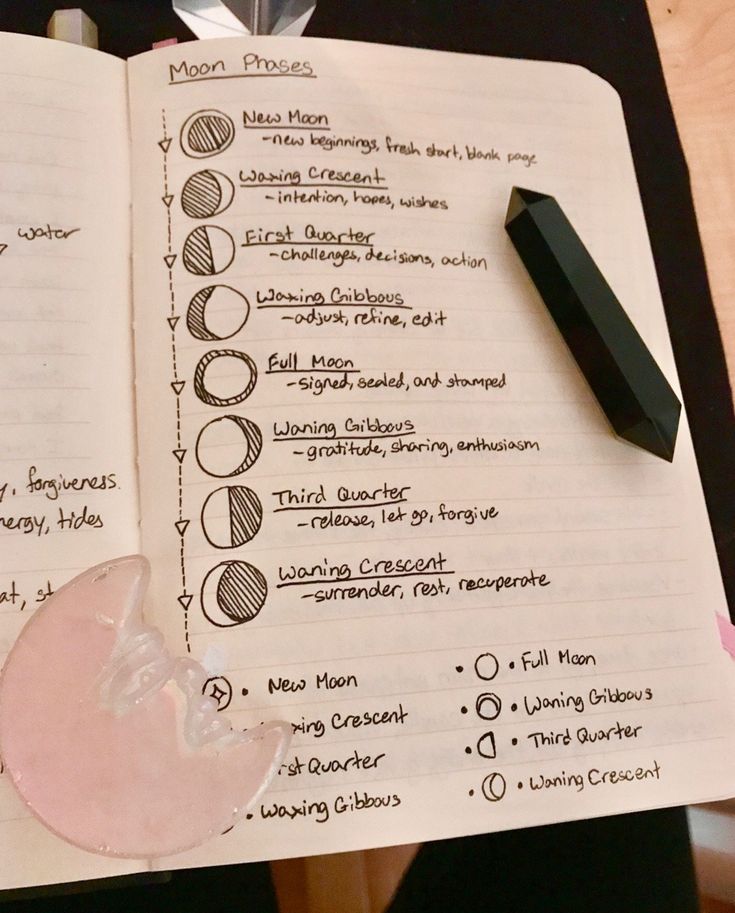 water
forgiveness.
tides
Moon Phases
New Moon
-new beginnings, fresh start, blank page
Waxing Crescent
-intention, hopes, wishes
First Quarter
-challenges, decisions, action
Waxing Gibbous
-adjust, refine, edit
Full Moon
-signed, sealed, and stamped
Waning Gibbous
-gratitude, sharing, enthusiasm
Third Quarter
-release, let go, forgive
Waning Crescent
-surrender, rest, recuperate
• New Moon
Crescent
Quarter
• Waxing Gibbous
• • Full Moon
• • Waning Gibbous
• • Third Quarter
• • Waning Crescent